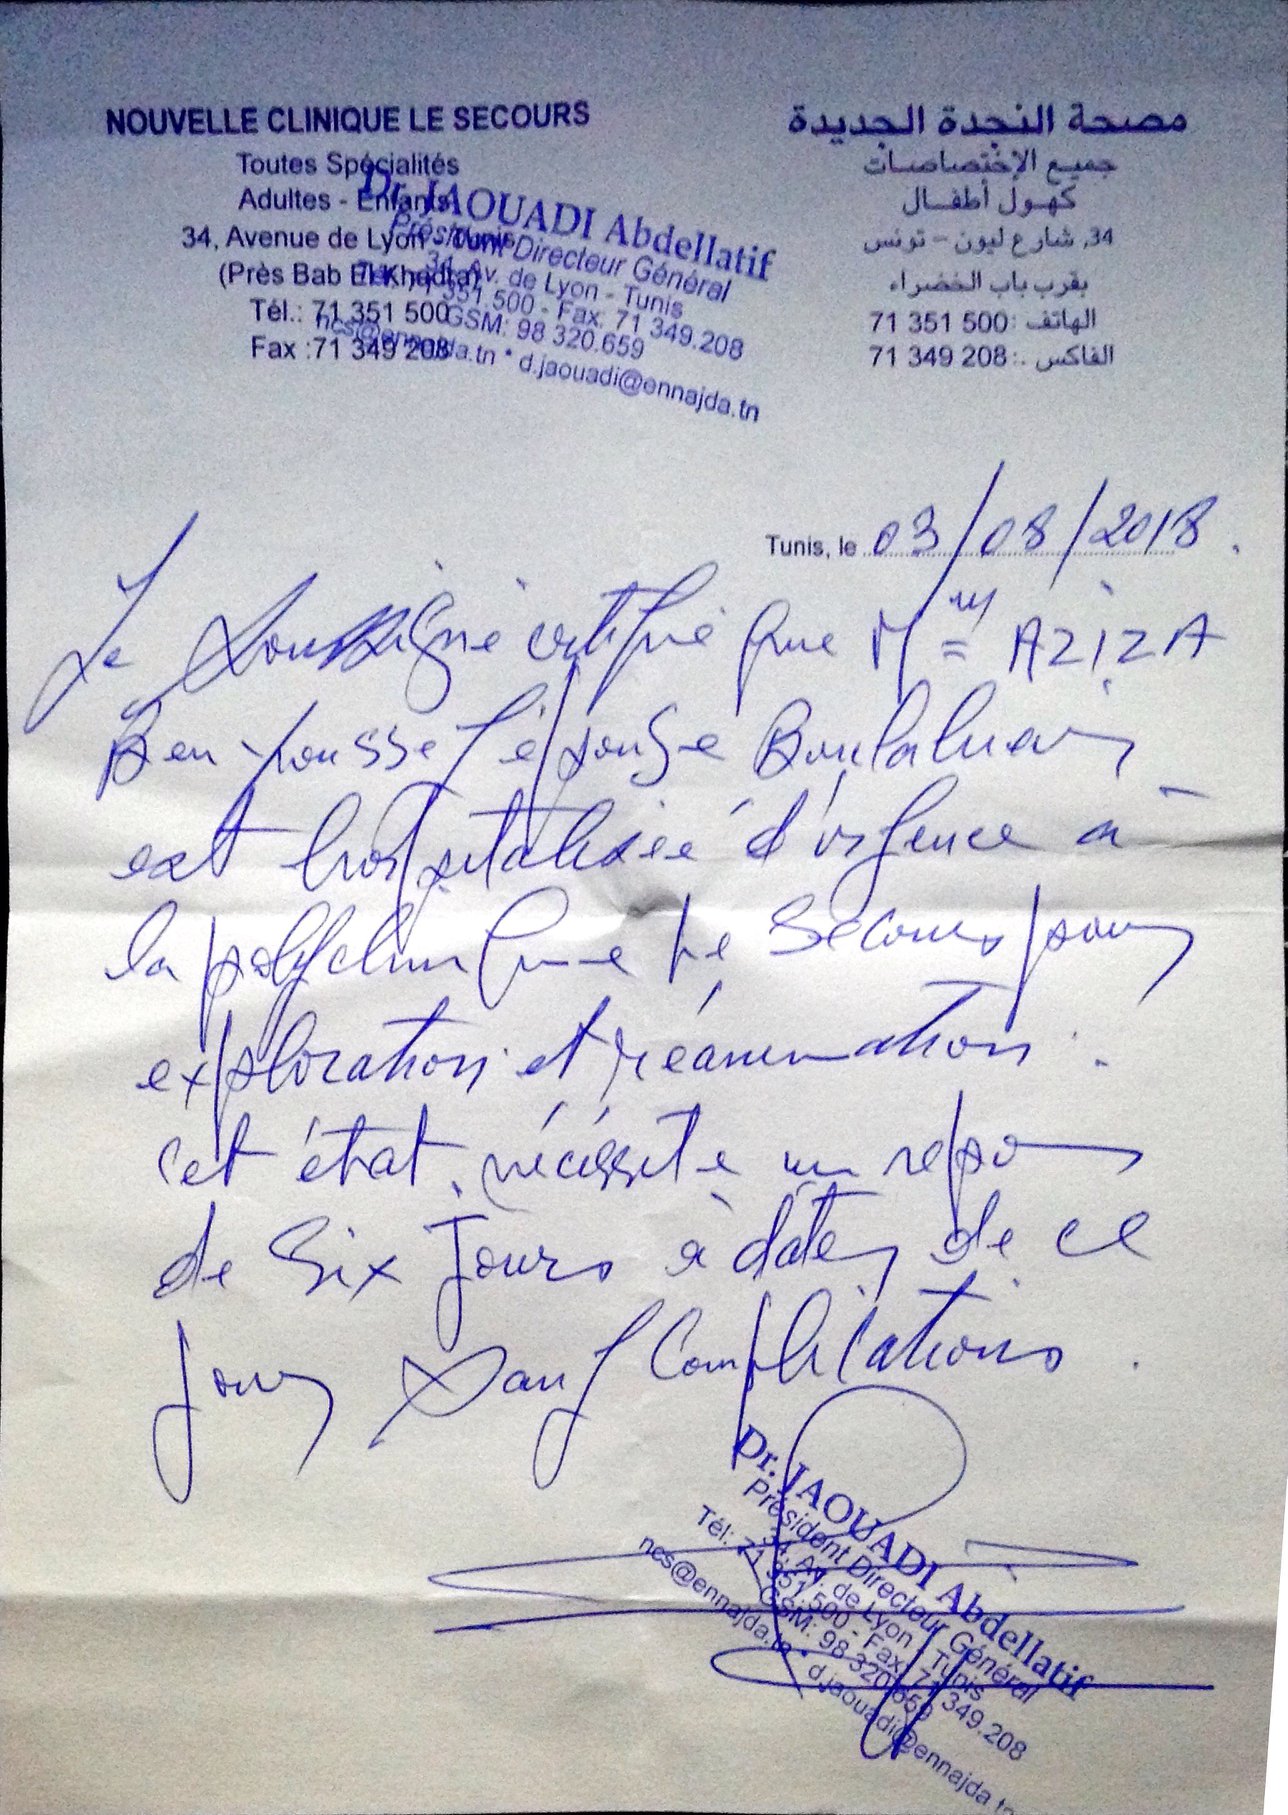 NOUVELLE CLINIQUE LE SECOURS
Toutes Spécialités
Adultes - Enfants
34, Avenue de Lyon - Tunis
(Près Bab El Khadra)
Tél.: 71 351 500
Fax :71 349 208
Dr. JAOUADI Abdellatif
Président Directeur Général
34, Av. de Lyon - Tunis
Tél: 71 351.500 - Fax: 71 349.208
GSM: 98 320.659
ncs@ennajda.tn * d.jaouadi@ennajda.tn
مصحة النجدة الجديدة
جميع الإختصاصات
كهول أطفال
34, شارع ليون - تونس
بقرب باب الخضراء
الهاتف :71 351 500
الفاكس :.71 349 208
Tunis, le 03/08/2018.
Je soussigné certifie que Mme AZIZA
Ben Youssef épouse
est hospitalisée d'urgence à
la polyclinique le Secours pour
exploration et réanimation.
cet état nécessite un repos
de Six Jours à dater de ce
jour sauf Complications.
Dr. JAOUADI Abdellatif
Président Directeur Général
34, Av. de Lyon - Tunis
Tél: 71 351.500 - Fax: 71 349.208
GSM: 98 320.659
ncs@ennajda.tn * d.jaouadi@ennajda.tn